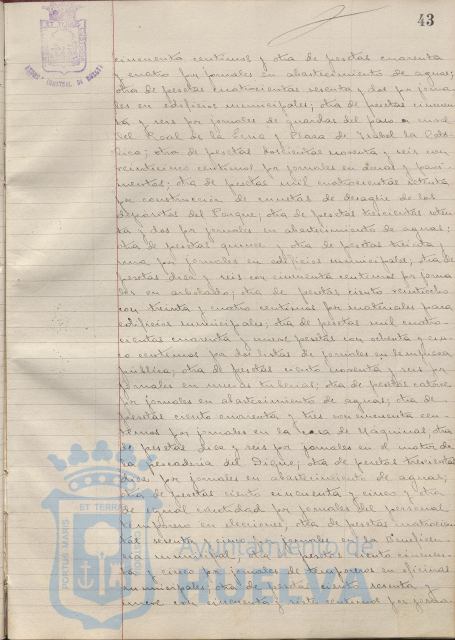 43
cincuenta centimos y otra de pesetas cuarenta
y cuatro por jornales en abastecimiento de aguas;
otra de pesetas cuatrocientas sesenta y dos por jorna-
les en edificios municipales; otra de pesetas cincuen-
ta y seis por jornales de guardas del paseo
del Real de la Feria y Plaza de Isabel la Cató-
lica; otra de pesetas doscientas noventa y seis con
veinticinco centimos por jornales en
otra de pesetas mil cuatrocientas setenta
por construccion de cunetas de desagüe de los
depósitos del Parque; otra de pesetas trescientas
ta y dos por jornales en abastecimiento de aguas;
otra de pesetas quince y otra de pesetas treinta y
una por jornales en edificios municipales; otra de
pesetas diez y seis con cincuenta centimos por jorna-
les en arbolado; otra de pesetas ciento veintiocho
con treinta y cuatro centimos por materiales para
edificios municipales; otra de pesetas mil cuatro-
cientas cuarenta y nueve pesetas con ochenta y cin-
co centimos por dos listas de jornales en limpieza
pública; otra de pesetas ciento noventa y seis por
jornales en otra de pesetas catorce
por jornales en abastecimiento de aguas; otra de
pesetas ciento cuarenta y tres con cincuenta cen-
timos por jornales en la Casa de Máquinas; otra
de pesetas diez y seis por jornales en el motor de
la Pescaderia del Dique; otra de pesetas trescientas
doce por jornales en abastecimiento de aguas;
otra de pesetas ciento cincuenta y cinco y otra
de igual cantidad por jornales del personal
temporero en elecciones; otra de pesetas cuatrocien-
tas setenta y cinco por jornales en la
municipal; otra de pesetas ciento cincuen-
ta y cinco por jornales de temporeros en oficinas
municipales; otra de pesetas ciento sesenta y
nueve con cincuenta y siete centimos por jorna-
ET TERRAE
PORTUS MARIS
Ayuntamiento de
HUELVA